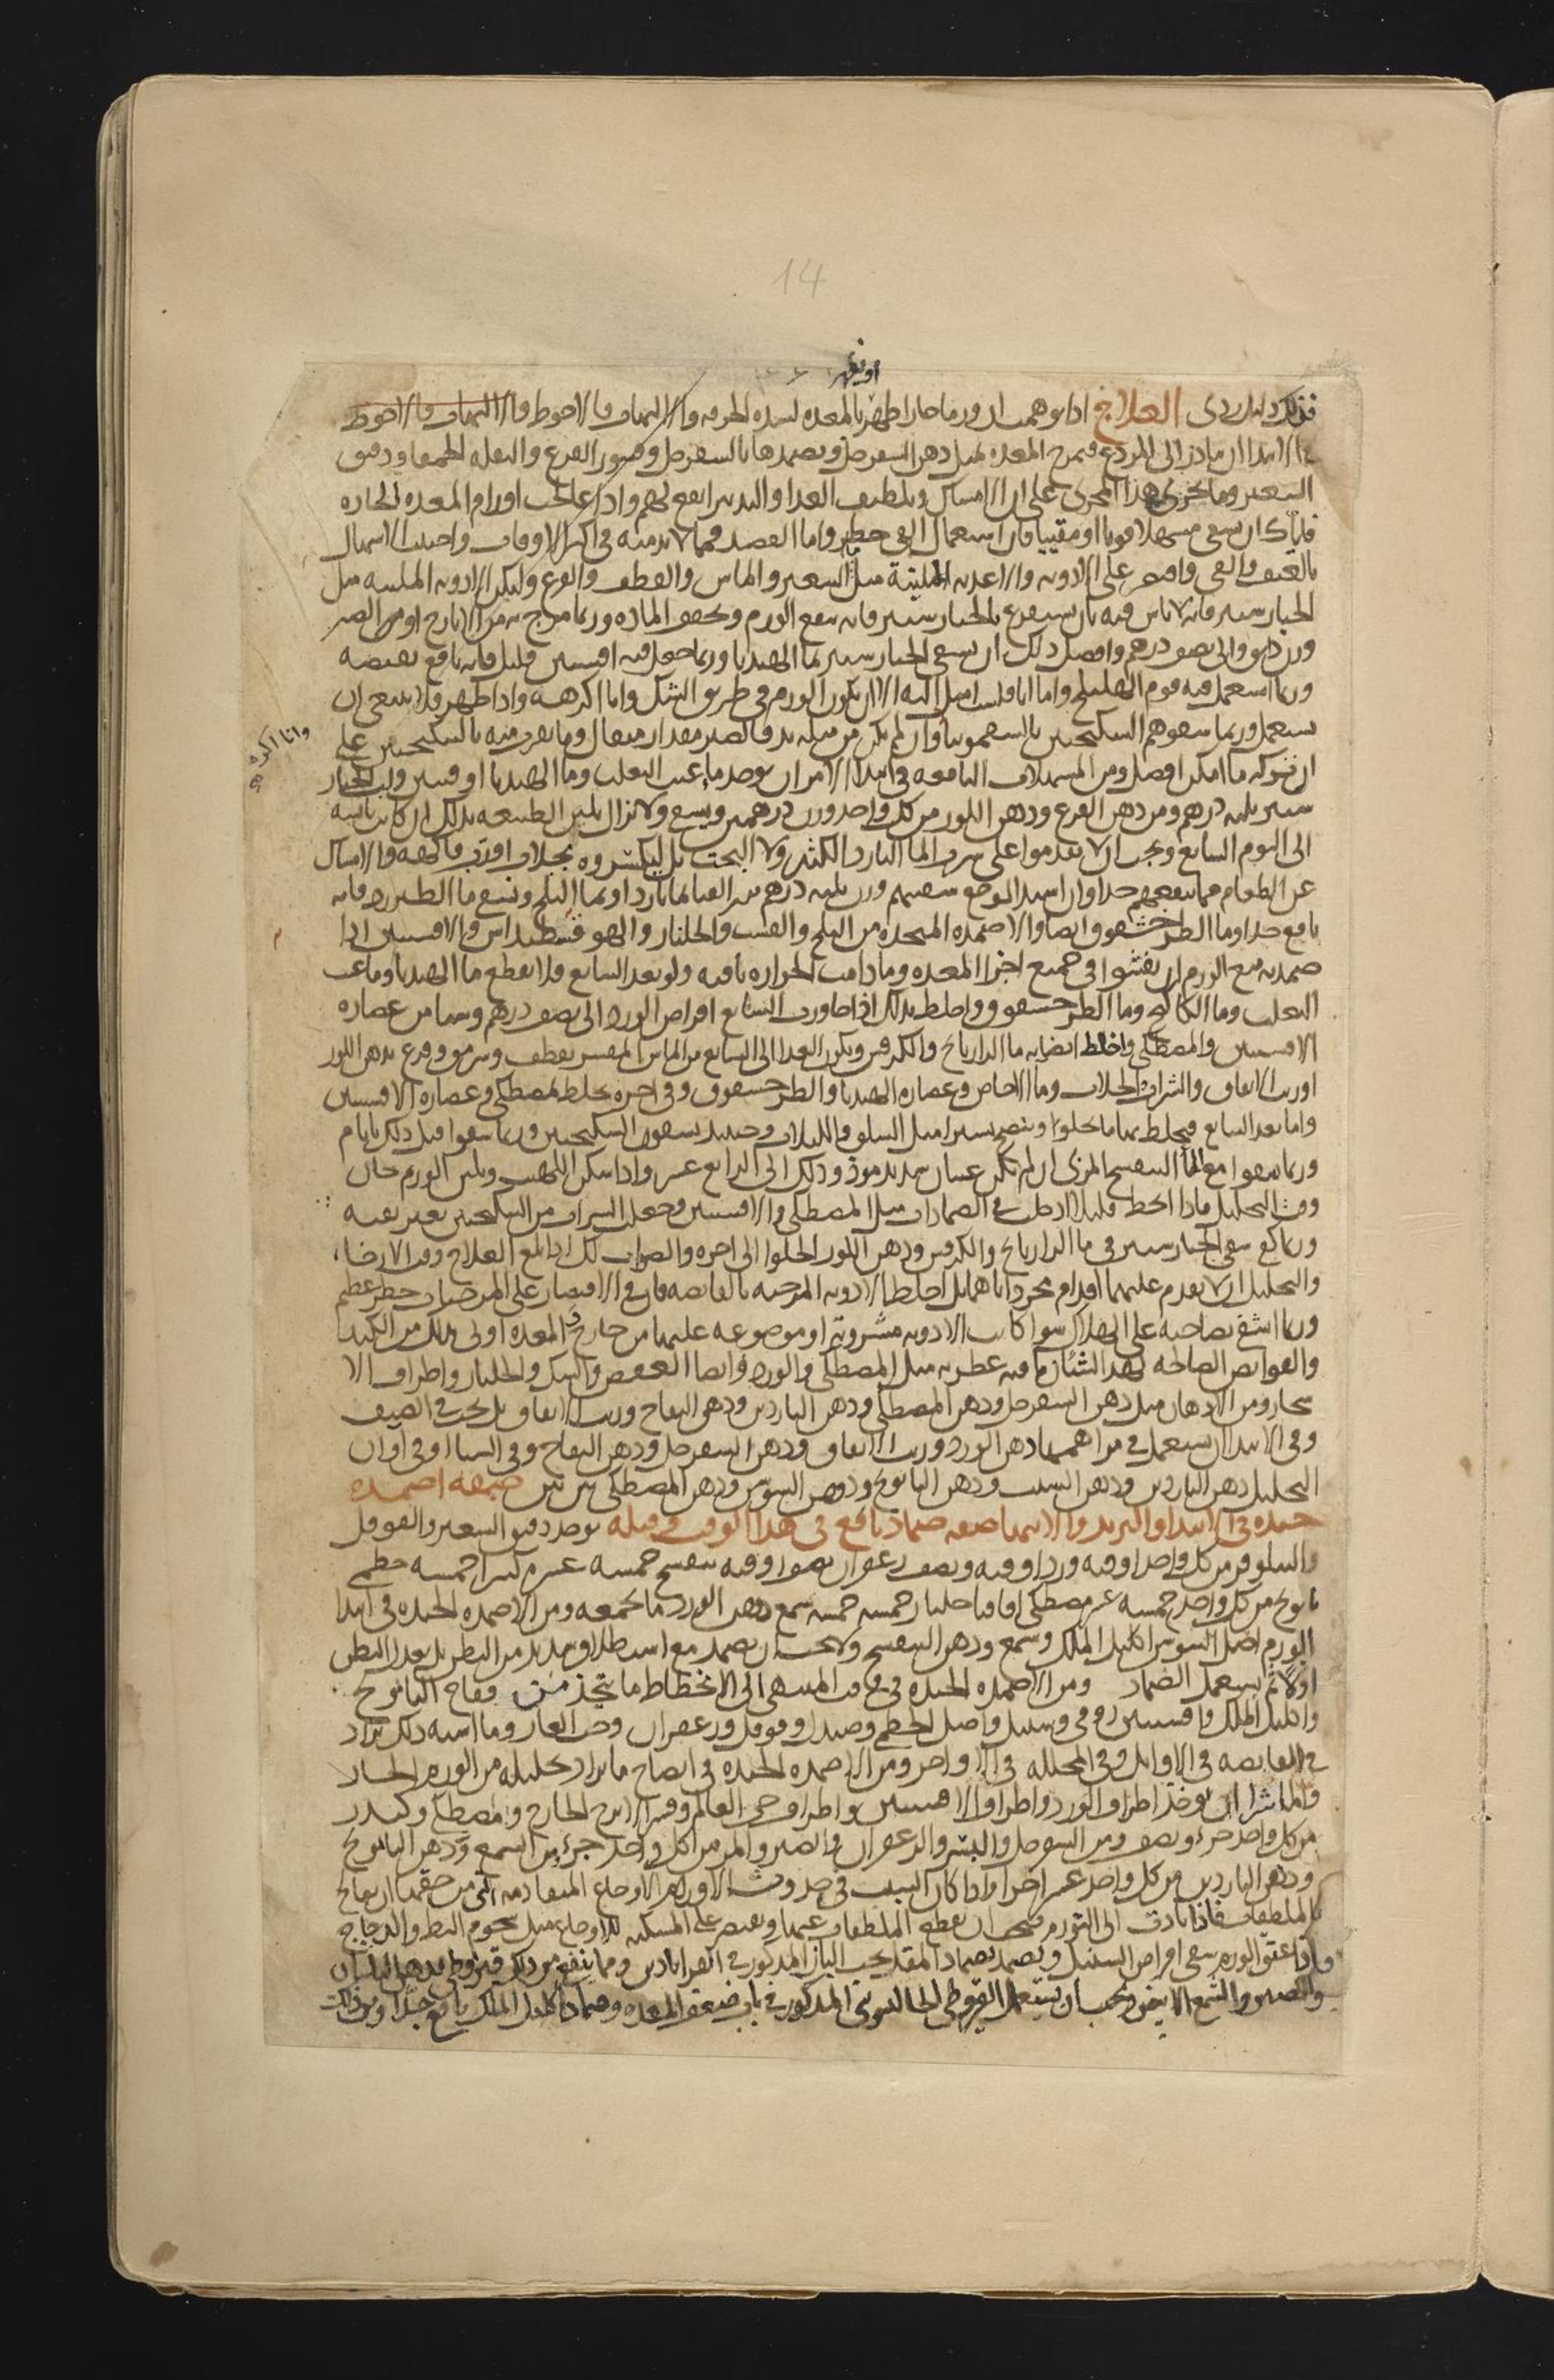 14
او يظهر
فذلك دليل ردى العلاج اذا توهمت ان ورما حارا ظهر بالمعده لشده الحرقه والالتهاب فالاحوط
فى الابتدا ان تبادر الى الردع فتمرخ المعده بمثل دهن السفرجل وتضمدها بالسفرجل وقشور القرع والبقله الحمقا ودقيق
الشعير وما يجرى هذا المجرى على ان الامساك وتلطيف الغذا والتدبير انفع لهم واذا عالجت اورام المعده الحاره
فاياك ان تسقى مسهلا قويا او مقييا فان استعمال القى خطر واما الفصد فمما لا بد منه فى اكثر الاوقات واجتنب الاسهال
بالعنف والقى واقتصر على الادويه والاغذيه الملينة مثل الشعير والماش والقطف والقرع وليكن الادويه الملينه مثل
الخيارشنبر فانه لا باس فيه بان يستفرغ بالخيارشنبر فانه ينفع الورم ويجفف الماده وربما مزج به من الايارج او من الصبر
وزن دانق والى نصف درهم وافضل ذلك ان يسقى الخيارشنبر بما الهندبا وربما جعل فيه افسنتين قليل فانه نافع بقبضه
وربما استعمل فيه قوم الهليلج واما انا فلست اميل اليه الا ان يكون الورم فى طريق الشك وانا اكرهه واذا ظهر فلا ينبغى ان
يستعمل وربما سقوهم السكنجبين بالسقمونيا وان لم يكن من مثله بد فالصبر مقدار مثقال وما يقرب منه بالسكنجبين على
وانا اكرهه
ان تركه ما امكن افضل ومن المسهلات النافعه فى ابتدا الامر ان يوخذ ما عنب الثعلب وما الهندبا اوقيتين ولب الخيار
شنبر ثلثه دراهم ومن دهن القرع ودهن اللوز من كل واحد وزن درهمين ويسقى ولا تزال تلين الطبيعه بذلك ان كانت يابسه
الى اليوم السابع ويجب ان لا يقدموا على شرب الما البارد الكثير ولا البحت بل ليكسروه بجلاب او رب فاكهه والامساك
عن الطعام مما ينفعهم جدا وان اشتد الوجع سقيتهم وزن ثلثه دراهم بزر القثا بما بارد او بما الثلج وينفع ما الطبرزد فانه
نافع جدا وما الطرخشقوق ايضا والاضمده المتخذه من البلح والقسب والجلنار والهوفقسطيداس والافسنتين اذا
ضمدت به منع الورم ان يفشوا فى جميع اجزا المعده وما دامت الحراره باقيه ولو بعد السابع فلا تقطع ما الهندبا وما عنب
الثعلب وما الكاكنج وما الطرخشقوق واخلط بذلك اذا جاوزت السابع اقراص الورد الى نصف درهم وشيا من عصاره
الافسنتين والمصطكى واخلط ايضا به ما الرازيانج والكرفس ويكون الغذا الى السابع من الماش المقشر بقطف وسرمق وقرع بدهن اللوز
او زيت الانفاق والشراب الجلاب وما الاجاص وعصاره الهندبا والطرخشقوق وفى اخره يخلط بمصطكى وعصاره الافسنتين
واما بعد السابع فيخلط بها ما يحلوا وينضج يسيرا مثل السلق واللبلاب وحينئذ يسقون السكنجبين وربما سقوا قبل ذلك بايام
وربما سقوا مع الما البنفسج المربى ان لم تكن غثيان شديد موذ وذلك الى الرابع عشر واذا سكن اللهيب ويلين الورم حان
وقت التحليل فاذا انحط قليلا ادخلت فى الضمادات مثل المصطكى والافسنتين وجعلت الشراب من السكنجبين بغير بقيه
وربما كفى سقى الخيارشنبر فى ما الرازيانج والكرفس ودهن اللوز الحلوا الى اخره والصواب لك اذا بلغ العلاج وقت الارخا،
والتحليل ان لا تقدم عليهما اقدام مجردا اياهما بل اخلط الادويه المرخيه بالقابضه فان فى الاقتصار على المرخيات خطر عظيم
وربما اشفى صاحبه على الهلاك سوا كانت الادويه مشروبة او موضوعه عليها من خارج والمعده اولى بذلك من الكبد
والقوابض الصالحه لهذا الشان ما فيه عطريه مثل المصطكى والورد وايضا العفص والسك والجلنار واطراف الا
شجار ومن الادهان مثل دهن السفرجل ودهن المصطكى ودهن الناردين ودهن التفاح وزيت الانفاق بل يجب فى الصيف
وفى الابتدا ان يستعمل فى مراهمها دهن الورد وزيت الانفاق ودهن السفرجل ودهن التفاح وفى الشتا او فى اوان
التحليل دهن الناردين ودهن الشبث ودهن البابونج ودهن السوسن ودهن المصطكى بين بين صفه اضمده
جيده فى الابتدا والتزيد والانتها صفه ضماد نافع فى هذا الوقت وقبله يوخذ دقيق الشعير والفوفل
والنيلوفر من كل واحد اوقيه ورد اوقيه ونصف زعفران نصف اوقيه بنفسج خمسه عشر م كثيرا خمسه خطمى
بابونج من كل واحد خمسه عشر مصطكى اقاقيا جلنار خمسه خمسه شمع دهن الورد ما يجمعه ومن الاضمده الجيده فى ابتدا
الورم اصل السوس اكليل الملك وشمع ودهن البنفسج ولا يجب ان يضمد مع استطلاق شديد من البطن بل يعدل البطن
اولا ثم يستعمل الضماد ومن الاضمده الجيده فى وقت المنتهى الى الانحطاط ما يتخذ من فقاح البابونج
واكليل الملك وافسنتين رومى وسنبل واصل الخطمى وصندل وفوفل وزعفران وحب الغار وما اشبه ذلك يزاد
فى القابضه فى الاوايل وفى المحلله فى الاواخر ومن الاضمده الجيده فى انضاج ما يراد تحليله من الورم الحار
والماشرا ان يوخذ اطراف الورد واطراف الافسنتين واطراف حى العالم وقشر الاترج الخارج ومصطكى وكندر
من كل واحد جزء ونصف ومن السفرجل والبسر والزعفران والصبر والمر من كل واحد جزء من الشمع ودهن البابونج
ودهن الناردين من كل واحد عشر اجزا واذا كان السبب فى حدوث الاورام الاوجاع المتقادمه التى من حقها ان تعالج
بالملطفات فاذا تادت الى التورم فيجب ان تقطع الملطفات عنها ويقتصر على المسكنه للاوجاع مثل شحوم البط والدجاج
واذا عتق الورم سقى اقراص السنبل ويضمد بضماد المقل بحب البان المذكور فى القراباذين ومما ينفع من ذلك قيروطى بدهن البلسان
والصبر والشمع الابيض ويجب ان يستعمل القيروطى الجالينوسى المذكور فى باب ضعف المعده وضماد اكليل الملك نافع جدا ومن ذلك